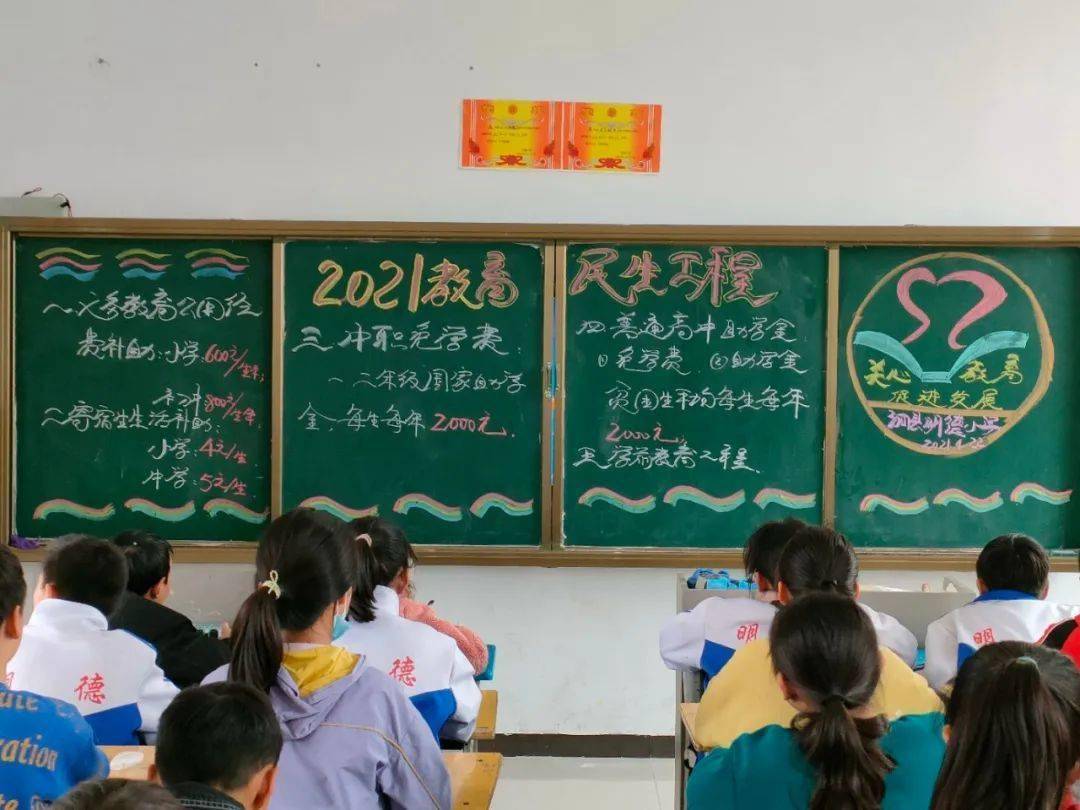 一、义务教育公用经
费补助:小学:600元/生年;
初中:800元/生年
二、寄宿生生活补助:
小学:4元/生.
中学:5元/生.
2021教育
三.中职免学费:
一.二年级国家助学
金:每生每年2000元.
民生工程
四.普通高中助学金
①免学费 ②助学金
贫困生平均每生每年
2000元;
五.学前教育工程.
关心 教育
促进发展
泗县明德小学
2021.4.22
德
德
明
明